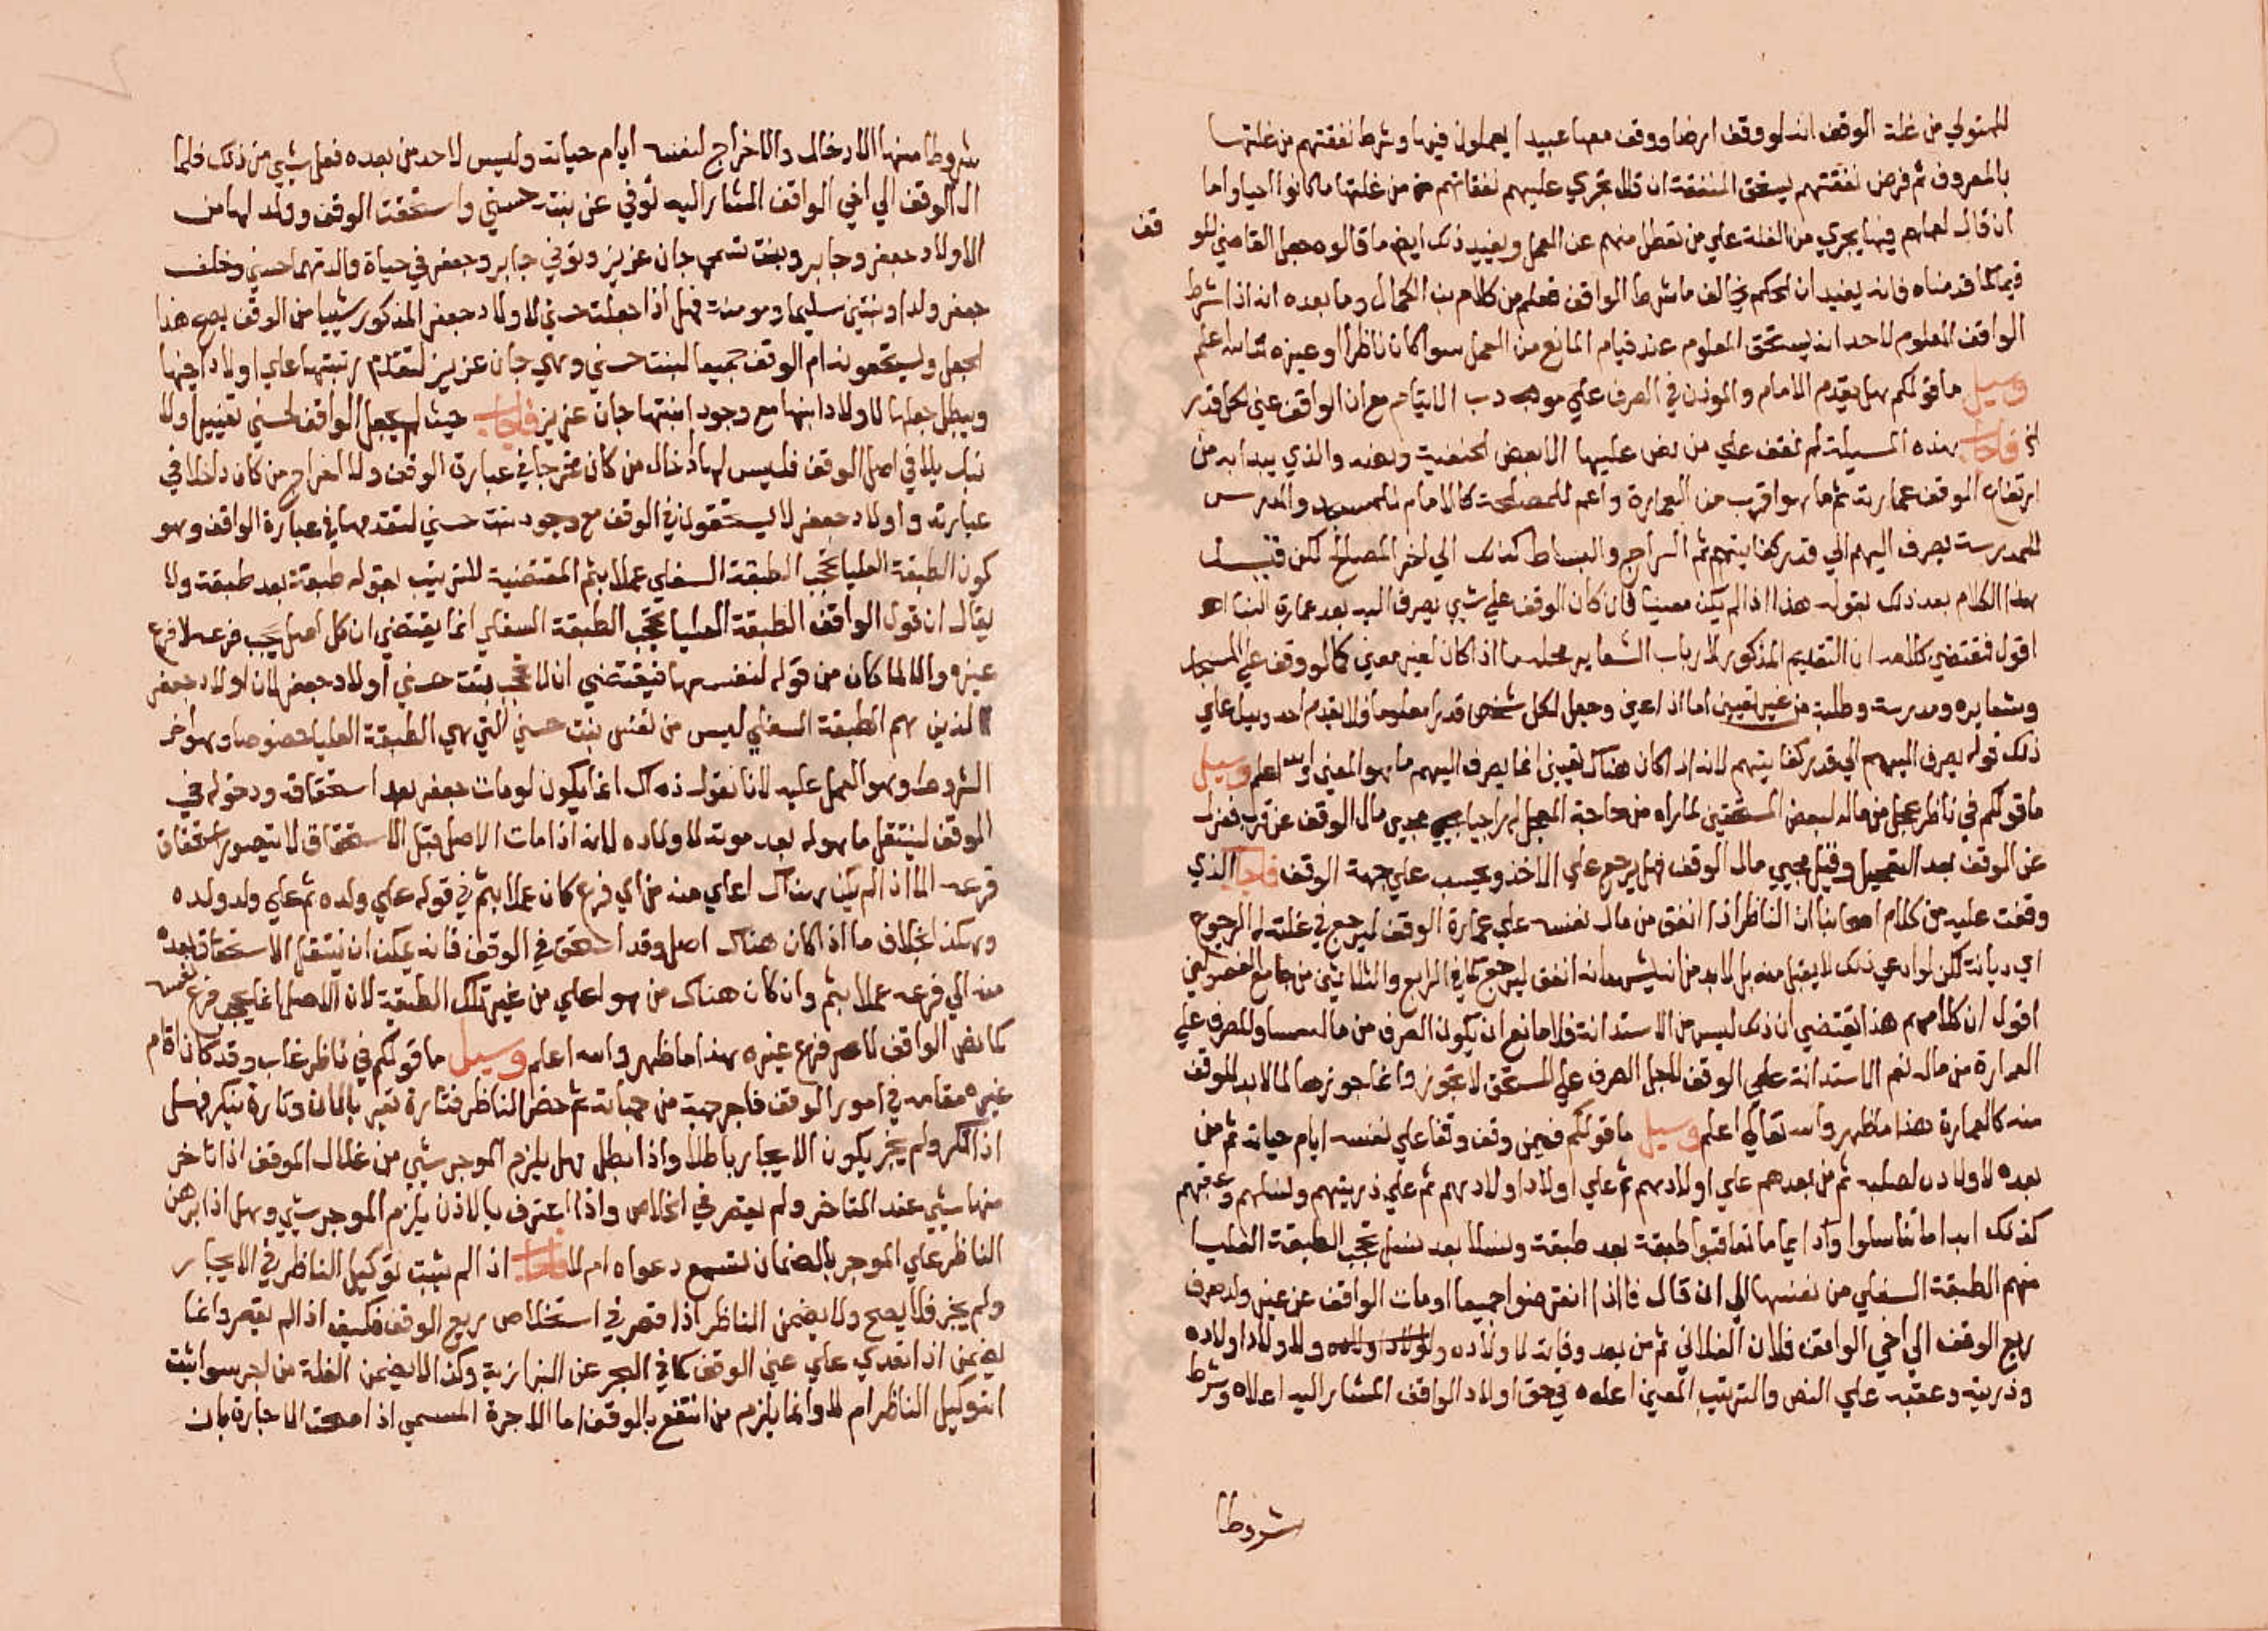 للمتولي من غلة الوقف انه لو وقف ارضا ووقف معها عبيدا يعملون فيها وشرط نفقتهم من غلتها
بالمعروف ثم فرض نفقتهم يستحق المنفقة ان قال تجري عليهم نفقاتهم من غلتها ما كانوا احيا واما
ان قال لعملهم فيها يجري من الغلة علي من تعطل منهم عن العمل ويفيد ذلك ايضا ما قالوه جعل القاضي للمو
قف
فيما كما قدمناه فانه يفيد ان الحكم يخالف ما شرط الواقف فعلم من كلام بن الكمال وما بعده انه اذا شرط
الواقف المعلوم لاحد انه يستحق المعلوم عند قيام المانع من العمل سوا كان ناظرا او غيره والله اعلم
وسيل ما قولكم هل يقدم الامام والموذن في الصرف علي مودب الايتام مع ان الواقف عين لكل قدر
ا فاجاب هذه المسيلة لم نقف علي من نص عليها الا بعض الحنفية ونصه والذي يبدا به من
ارتفاع الوقف عمارته ثم ما هو اقرب من العمارة واعم للمصلحة كالامام للمسجد والمدرس
للمدرسة يصرف اليهم الي قدر كفايتهم ثم السراج والبساط كذلك الي اخر المصالح لكن قيد
هذا الكلام بعد ذلك بقوله هذا اذا لم يكن معينا فان كان الوقف علي شي يصرف اليه بعد عمارة البنا اه
اقول فمقتضي كلامه ان التقديم المذكور لارباب الشعاير محله ما اذا كان لغير معين كما لو وقف علي المسجد
وشعايره ومدرسة وطلبة من غير تعيين اما اذا عين وجعل لكل شخص قدرا معلوما فلا يقدم احد ويدل علي
ذلك قوله يصرف اليهم الي قدر كفايتهم لانه اذا كان هناك تعيين انما يصرف اليهم ما هو المعين والله اعلم وسيل
ما قولكم في ناظر عجل من ماله لبعض المستحقين لما راه من حاجة المعجل له راجيا مجي مال الوقف عن قرب فعزل
عن الوقف بعد التعجيل وقبل مجيي مال الوقف فهل يرجع علي الاخذ ويحسب علي جهة الوقف فاجاب الذي
وقفت عليه من كلام اصحابنا ان الناظر اذا انفق من مال نفسه علي عمارة الوقف ليرجع في غلته له الرجوع
اي ديانة لكن لو ادعي ذلك لا يقبل منه بل لابد من ان يشهد انه انفق ليرجع كما في الرابع والثلاثين من جامع الفصولين
اقول ان كلامهم هذا يقتضي ان ذلك ليس من الاستدانة فلا مانع ان يكون الصرف من ماله مساو للصرف علي
العمارة من ماله نعم الاستدانة علي الوقف لاجل الصرف علي المستحق لا تجوز وانما جوزها لما لابد للوقف
منه كالعمارة هذا ما ظهر والله تعالي اعلم وسيل ما قولكم فيمن وقف وقفا علي نفسه ايام حياته ثم من
بعده لاولاده لصلبه ثم من بعدهم علي اولادهم ثم علي اولاد اولادهم ثم علي ذريتهم ونسلهم وعقبهم
كذلك ابدا ما تناسلوا ودايما ما تعاقبوا طبقة بعد طبقة ونسلا بعد نسل تحجب الطبقة العليا
منهم الطبقة السفلي من نفسها الي ان قال فاذا انقرضوا جميعا او مات الواقف عن غير ولد صرف
ريع الوقف الي اخي الواقف فلان الفلاني ثم من بعد وفاته لاولاده ولاولاد اولاده
وذريته وعقبه علي النص والترتيب المعين اعلاه في حق اولاد الواقف المشار اليه اعلاه وشرط
شروطا
شروطا منها الادخال والاخراج لنفسه ايام حياته وليس لاحد من بعده فعل شي من ذلك فلما
ال الوقف الي اخي الواقف المشار اليه توفي عن بنته حسني واستحقت الوقف وولد لها من
الاولاد جعفر وجابر وبنت تسمي جان عزيز وتوفي جابر وجعفر في حياة والدتهما حسني وخلف
جعفر ولدا وبنتين سليما ومومنة فهل اذا جعلت حسني لاولاد جعفر المذكور شييا من الوقف يصح هذا
الجعل ويستحقونه ام الوقف جميعا لبنت حسني وهي جان عزيز لتقدم رتبتها علي اولاد اخيها
ويبطل جعلها لاولاد ابنها مع وجود ابنتها جان عزيز فاجاب حيث لم يجعل الواقف لحسني تغييرا ولا
تبديلا في اصل الوقف فليس لها ادخال من كان خرجا في عبارة الوقف ولا اخراج من كان داخلا في
عبارته واولاد جعفر لا يستحقون في الوقف مع وجود بنت حسني لتقدمها في عبارة الواقف وهو
كون الطبقة العليا تحجب الطبقة السفلي عملا بثم المقتضية للترتيب بقوله طبقة بعد طبقة ولا
يقال ان قول الواقف الطبقة العليا تحجب الطبقة السفلي انما يقتضي ان كل اصل يحجب فرعه لا فرع
غيره والا لما كان من قوله لنفسها فيقتضي ان لا تحجب بنت حسني اولاد جعفر لان اولاد جعفر
الذين هم الطبقة السفلي ليس من نفس بنت حسني التي هي الطبقة العليا خصوصا وهو اخر
الشروط وهو العمل عليه لانا نقول ذاك انما يكون لو مات جعفر بعد استحقاقه ودخوله في
الوقف لينتقل ما هو له بعد موته لاولاده لانه اذا مات الاصل قبل الاستحقاق لا يتصور استحقاق
فرعه الا اذا لم يكن هناك اعلي منه من اي فرع كان عملا بثم في قوله علي ولده ثم علي ولد ولده
وهكذا بخلاف ما اذا كان هناك اصل وقد استحق في الوقف فانه يمكن ان ينتقل الاستحقاق بعده
منه الي فرعه عملا بثم وان كان هناك من هو اعلي من غير تلك الطبقة لان الاصل انما يحجب فرع نفسه
كما نص الواقف لا فرع غيره هذا ما ظهر والله اعلم وسيل ما قولكم في ناظر غاب وقد كان اقام
غيره مقامه في امور الوقف فاجر جهة من جهاته ثم حضر الناظر فتارة يقر بالاذن وتارة ينكر فهل
اذا انكر ولم يجز يكون الايجار باطلا واذا بطل هل يلزم الموجر شي من غلال الوقف اذا تاخر
منها شي عند المتاخر ولم يقصر في الخلاص واذا اعترف بالاذن يلزم الموجر شي وهل اذا برهن
الناظر علي الموجر بالضمان تسمع دعواه ام لا فاجاب اذا لم يثبت توكيل الناظر في الايجار
ولم يجز فلا يصح ولا يضمن الناظر اذا قصر في استخلاص ريع الوقف فكيف اذا لم يقصر وانما
يضمن اذا تعدي علي عين الوقف كما في البحر عن البزازية وكذا لا يضمن الغلة من اجر سوا ثبت
توكيل الناظر ام لا وانما يلزم من انتفع بالوقف اما الاجرة المسمي اذا صحت الاجارة بان